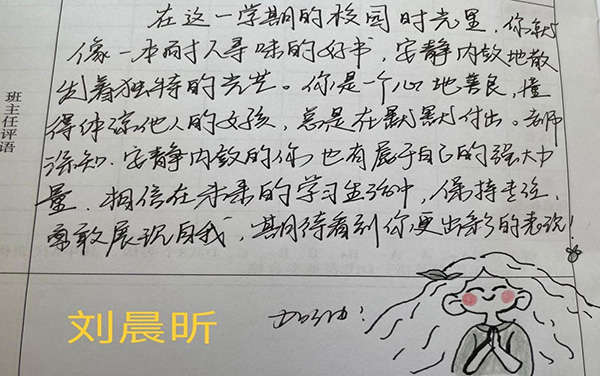 在这一学期的校园时光里，你就
像一本耐人寻味的好书，安静内敛地散
发着独特的光芒。你是一个心地善良，懂
得体谅他人的女孩，总是在默默付出。老师
深知，安静内敛的你也有属于自己的强大力
量。相信在未来的学习生活中，保持专注，
勇敢展现自我，期待看到你更出彩的表现！
班主任评语
刘晨昕